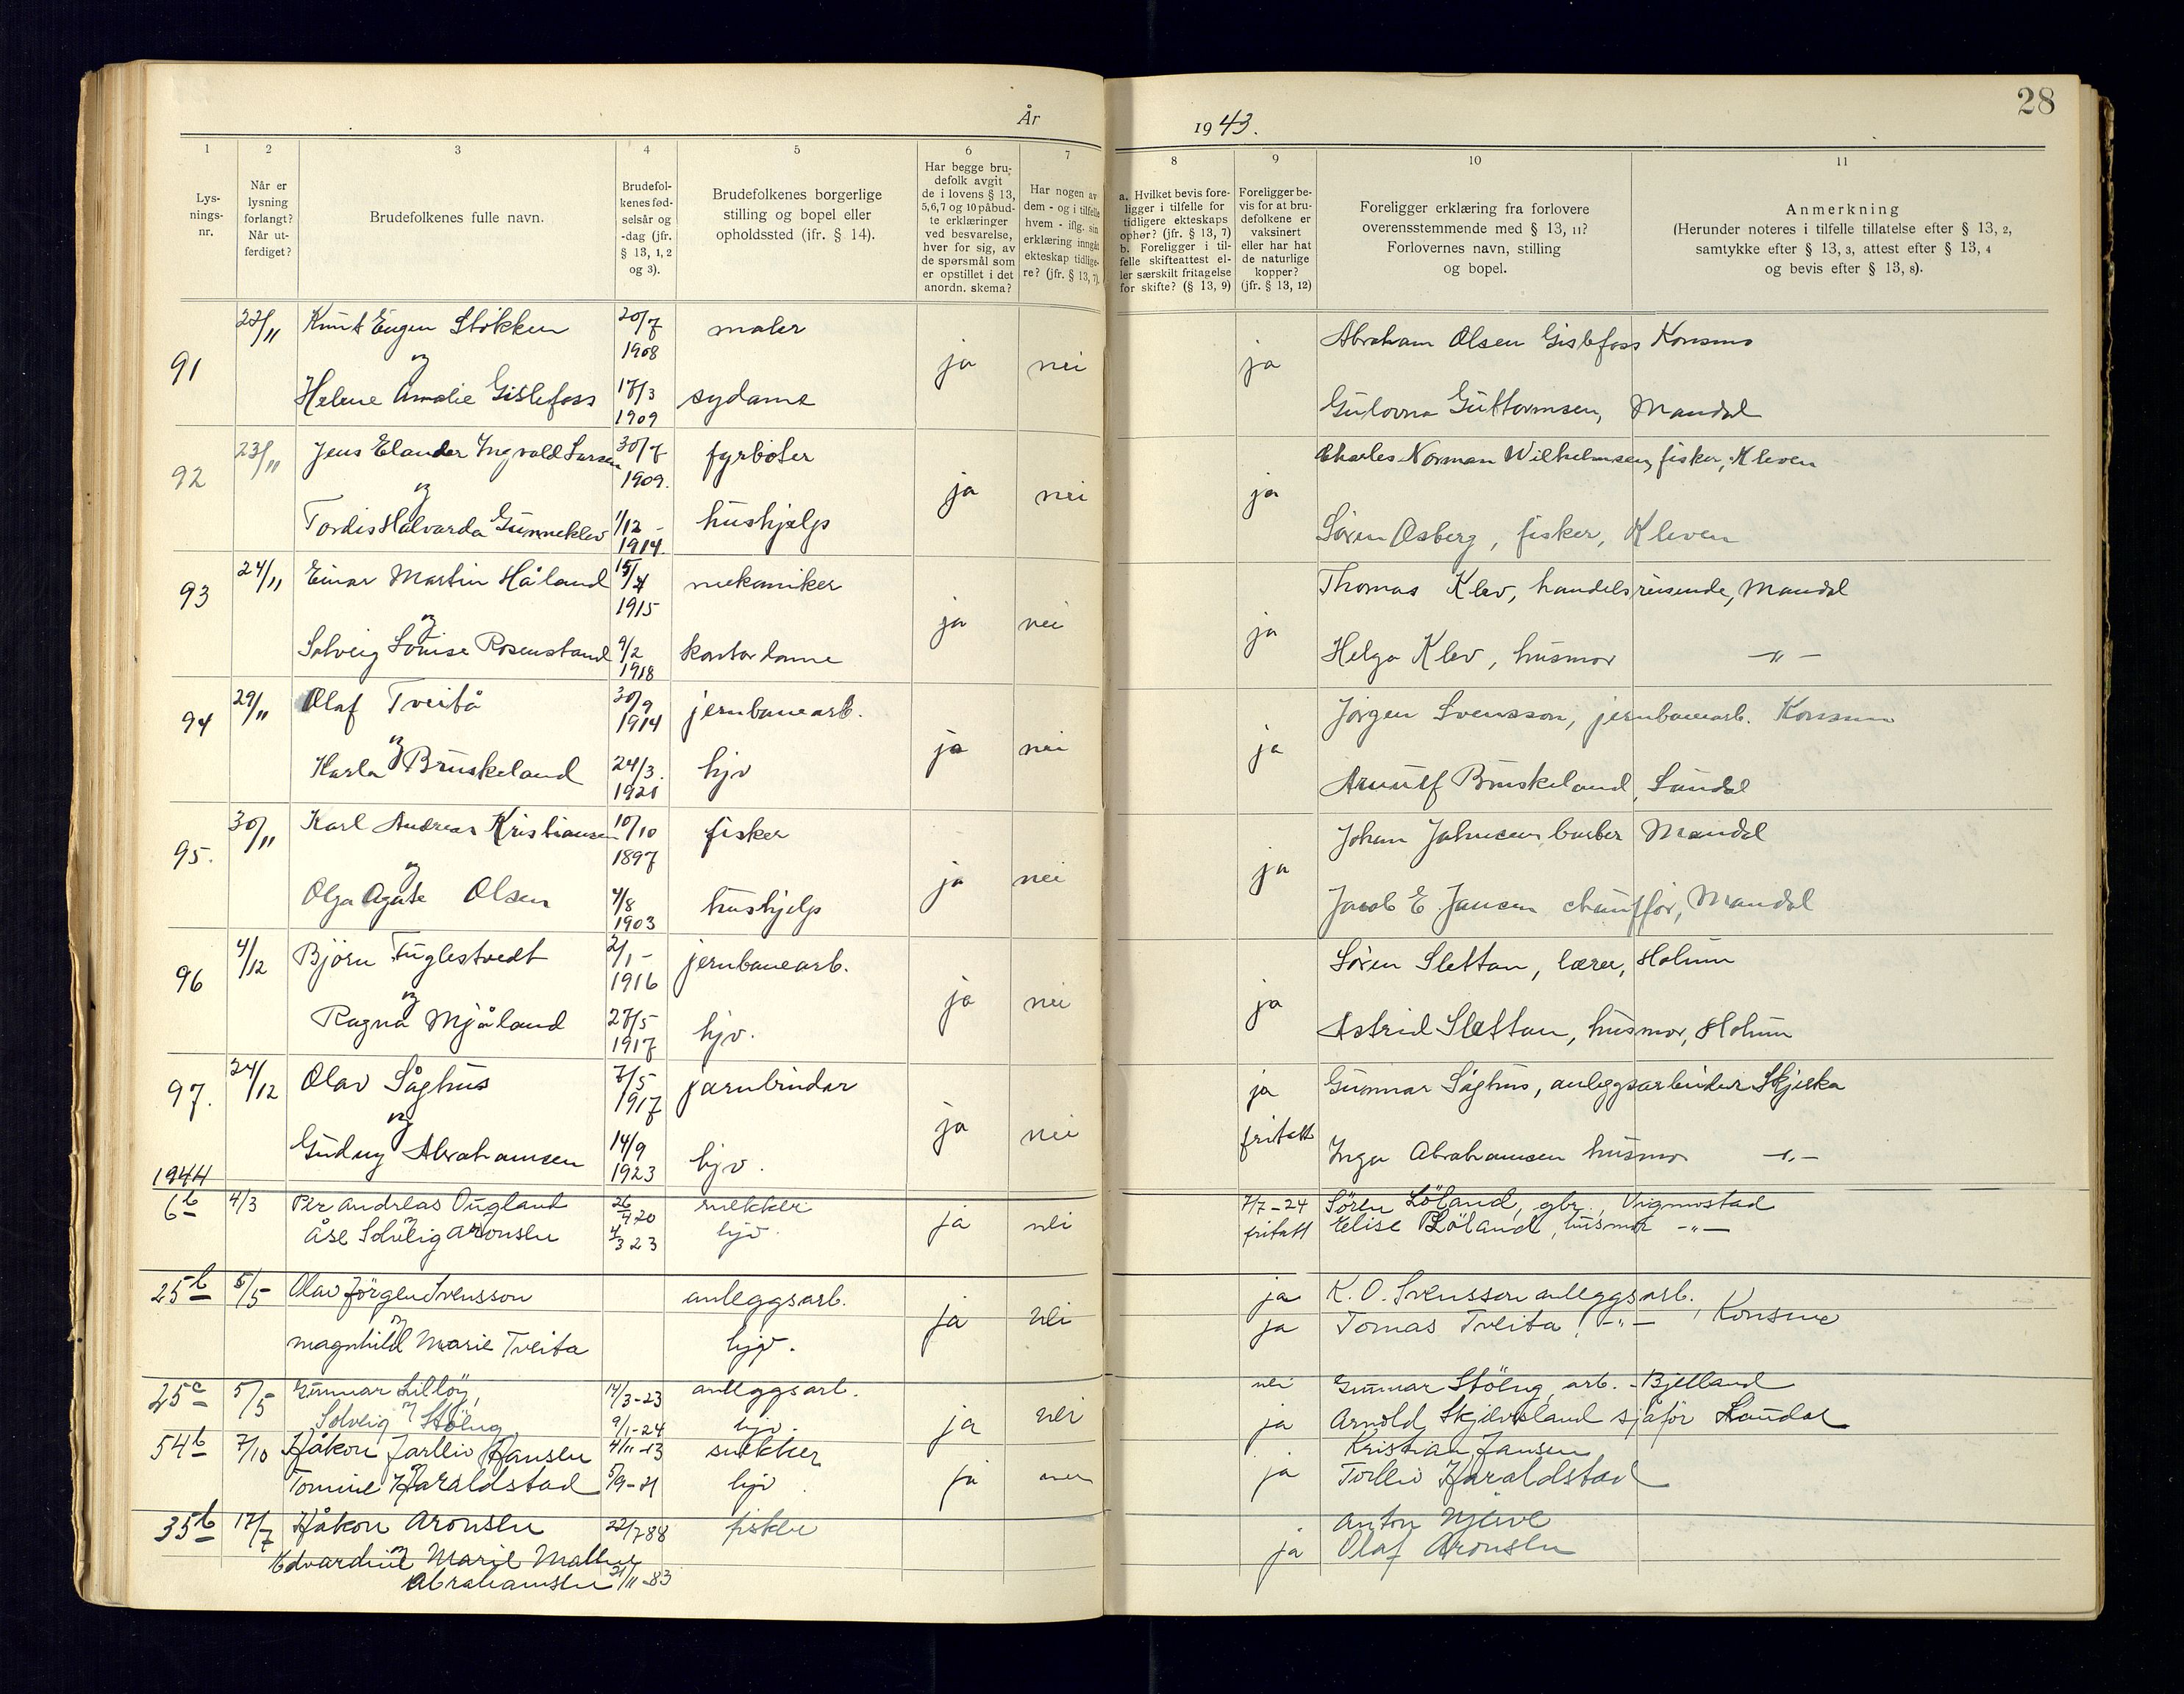 28
År 1943.
1 2 3 4 5 6 7 8 9 10 11
Lys-
nings-
nr.
Når er
lysning
forlangt?
Når ut-
ferdiget?
Brudefolkenes fulle navn.
Brudefol-
kenes fød-
selsår og
-dag (jfr.
§ 13, 1, 2
og 3).
Brudefolkenes borgerlige
stilling og bopel eller
opholdssted (jfr. § 14).
Har begge bru-
defolk avgit
de i lovens § 13,
5,6,7 og 10 påbud-
te erklæringer
ved besvarelse,
hver for sig, av
de spørsmål som
er opstillet i det
anordn. skema?
Har nogen av
dem - og i tilfelle
hvem - iflg. sin
erklæring inngåt
ekteskap tidlige-
re? (jfr. § 13, 7).
a. Hvilket bevis fore-
ligger i tilfelle for
tidligere ekteskaps
ophør? (jfr. § 13, 7)
b. Foreligger i til-
felle skifteattest el-
ler særskilt fritagelse
for skifte? (§ 13, 9)
Foreligger be-
vis for at bru-
defolkene er
vaksinert
eller har hat
de naturlige
kopper?
(jfr. § 13, 12)
Foreligger erklæring fra forlovere
overensstemmende med § 13, 11?
Forlovernes navn, stilling
og bopel.
Anmerkning
(Herunder noteres i tilfelle tillatelse efter § 13, 2,
samtykke efter § 13, 3, attest efter § 13, 4
og bevis efter § 13, 8).
91 22/11 Knut Eugen Stökken 20/7 1908 maler ja nei ja Abraham Olsen Gislefoss Konsmo
og
Helene Amalie Gislefoss 17/3 1909 sydame Gulovna Guttormsen, Mandal
92 23/11 Jens Elander Ingvald Larsen 30/7 1909. fyrböter ja nei ja Charles Norman Wilhelmsen, fisker, Kleven
og
Tordis Halvarda Gunneklev 1/12 - 1914. hushjelp Sören Osberg, fisker, Kleven
93 24/11 Einar Martin Håland 15/4 1915 mekaniker ja nei ja Thomas Klev, handelsreisende, Mandal
og
Solveig Louise Rosenstand 9/2 1918 kontordame Helga Klev, husmor -"-
94 29/11 Olaf Tveitå 30/9 1914 jernbanearb. ja nei ja Jörgen Svensson, jernbanearb. Konsmo
og
Karla Bruskeland 24/3. 1921 hjv Arnulf Bruskeland, Laudal
95. 30/11 Karl Andreas Kristiansen 10/10 1897 fisker ja nei ja Johan Johnsen, barber Mandal
og
Olga Agate Olsen 4/8 1903 hushjelp Jacob E. Jansen chaufför, Mandal
96 4/12 Björn Fuglestvedt 2/1 - 1916 jernbanearb. ja nei ja Sören Slettan, lærer, Holum
og
Ragna Mjåland 27/5 1917 hjv. Astrid Slettan, husmor, Holum
97. 24/12 Olav Såghus 7/5 1917 jarnbindar ja nei ja Gunnar Såghus, anleggsarbeider Skjeka
og
Gudny Abrahamsen 14/9 1923 hjv. fritatt Inga Abrahamsen husmor -"-
1944
6b 4/3 Per Andreas Ougland 26/4 20 snekker ja nei 7/7-24 Sören Löland, gbr., Vigmostad
og
Åse Solveig Aronsen 4/3 23 hjv. fritatt Elise Löland, husmor -"-
25b 5/5 Olav Jörgen Svensson anleggsarb. ja nei ja K. O. Svensson anleggsarb.
og
Magnhild Marie Tveita hjv. ja Tomas Tveita, -"- , Konsmo
25c 5/5 Gunnar Lillöy, 14/3-23 anleggsarb. ja nei nei Gunnar Stölug, arb. Bjelland
og
Solveig Stölug 9/1-24 hjv. ja Arnold Skjevsland sjåför Laudal
54b 7/10 Håkon Jarlliv Hansen 4/11-13 snekker ja nei Kristian Jansen
og
Tomine Haraldstad 5/9-21 hjv. ja Torlliv Haraldstad
35b 17/7 Håkon Aronsen 22/7 88 fisker Anton Njerve
og
Edvardine Marie Mathea
Abrahamsen 21/11-83 ja Olaf Aronsen